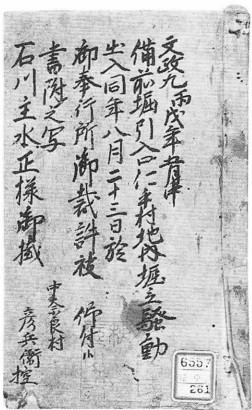 文政九丙戌年五月中
備前堀引入口仁手村地内堀之騒動
出入同年八月二十三日於
御奉行所御裁許被 仰付候
書附之写
石川主水正様御掛
中大
良村
彦兵衛控
6557
261